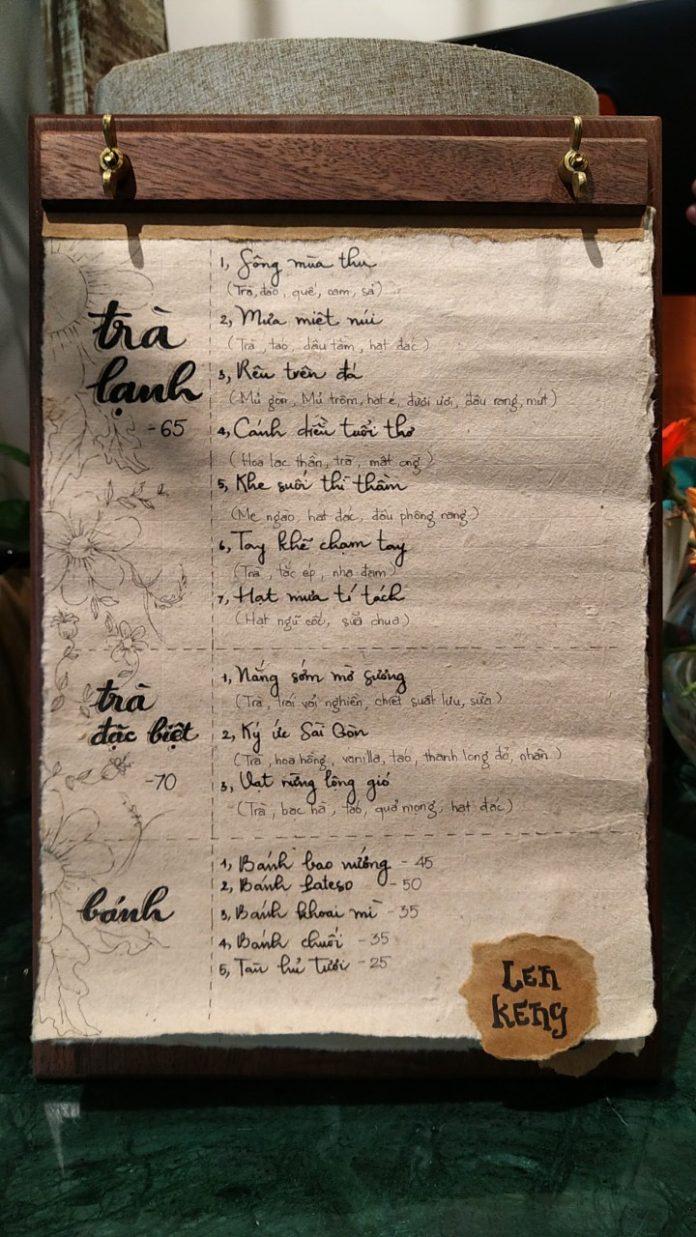 trà
lạnh
-65
1, Sông mùa thu
(Trà, đào, quế, cam, sả)
2, Mưa miệt núi
(Trà, táo, dâu tằm, hạt đác)
3, Rêu trên đá
(Mủ gòn, Mủ trôm, hạt é, đười ươi, đậu rang, mứt)
4, Cánh diều tuổi thơ
(Hoa lạc thần, trà, mật ong)
5, Khe suối thì thầm
(Me ngào, hạt đác, đậu phộng rang)
6, Tay khẽ chạm tay
(Trà, tắc ép, nha đam)
7, Hạt mưa tí tách
(Hạt ngũ cốc, sữa chua)
trà
đặc biệt
-70
1, Nắng sớm mờ sương
(Trà, trái vải nghiền, chiết suất lựu, sữa)
2, Ký ức Sài Gòn
(Trà, hoa hồng, vanilla, táo, thanh long đỏ, nhãn)
3, Vạt rừng lộng gió
(Trà, bạc hà, táo, quả mọng, hạt đác)
bánh
1, Bánh bao nướng - 45
2, Bánh pateso - 50
3, Bánh khoai mì - 35
4, Bánh chuối - 35
5, Tàu hủ tươi - 25
Len
Keng